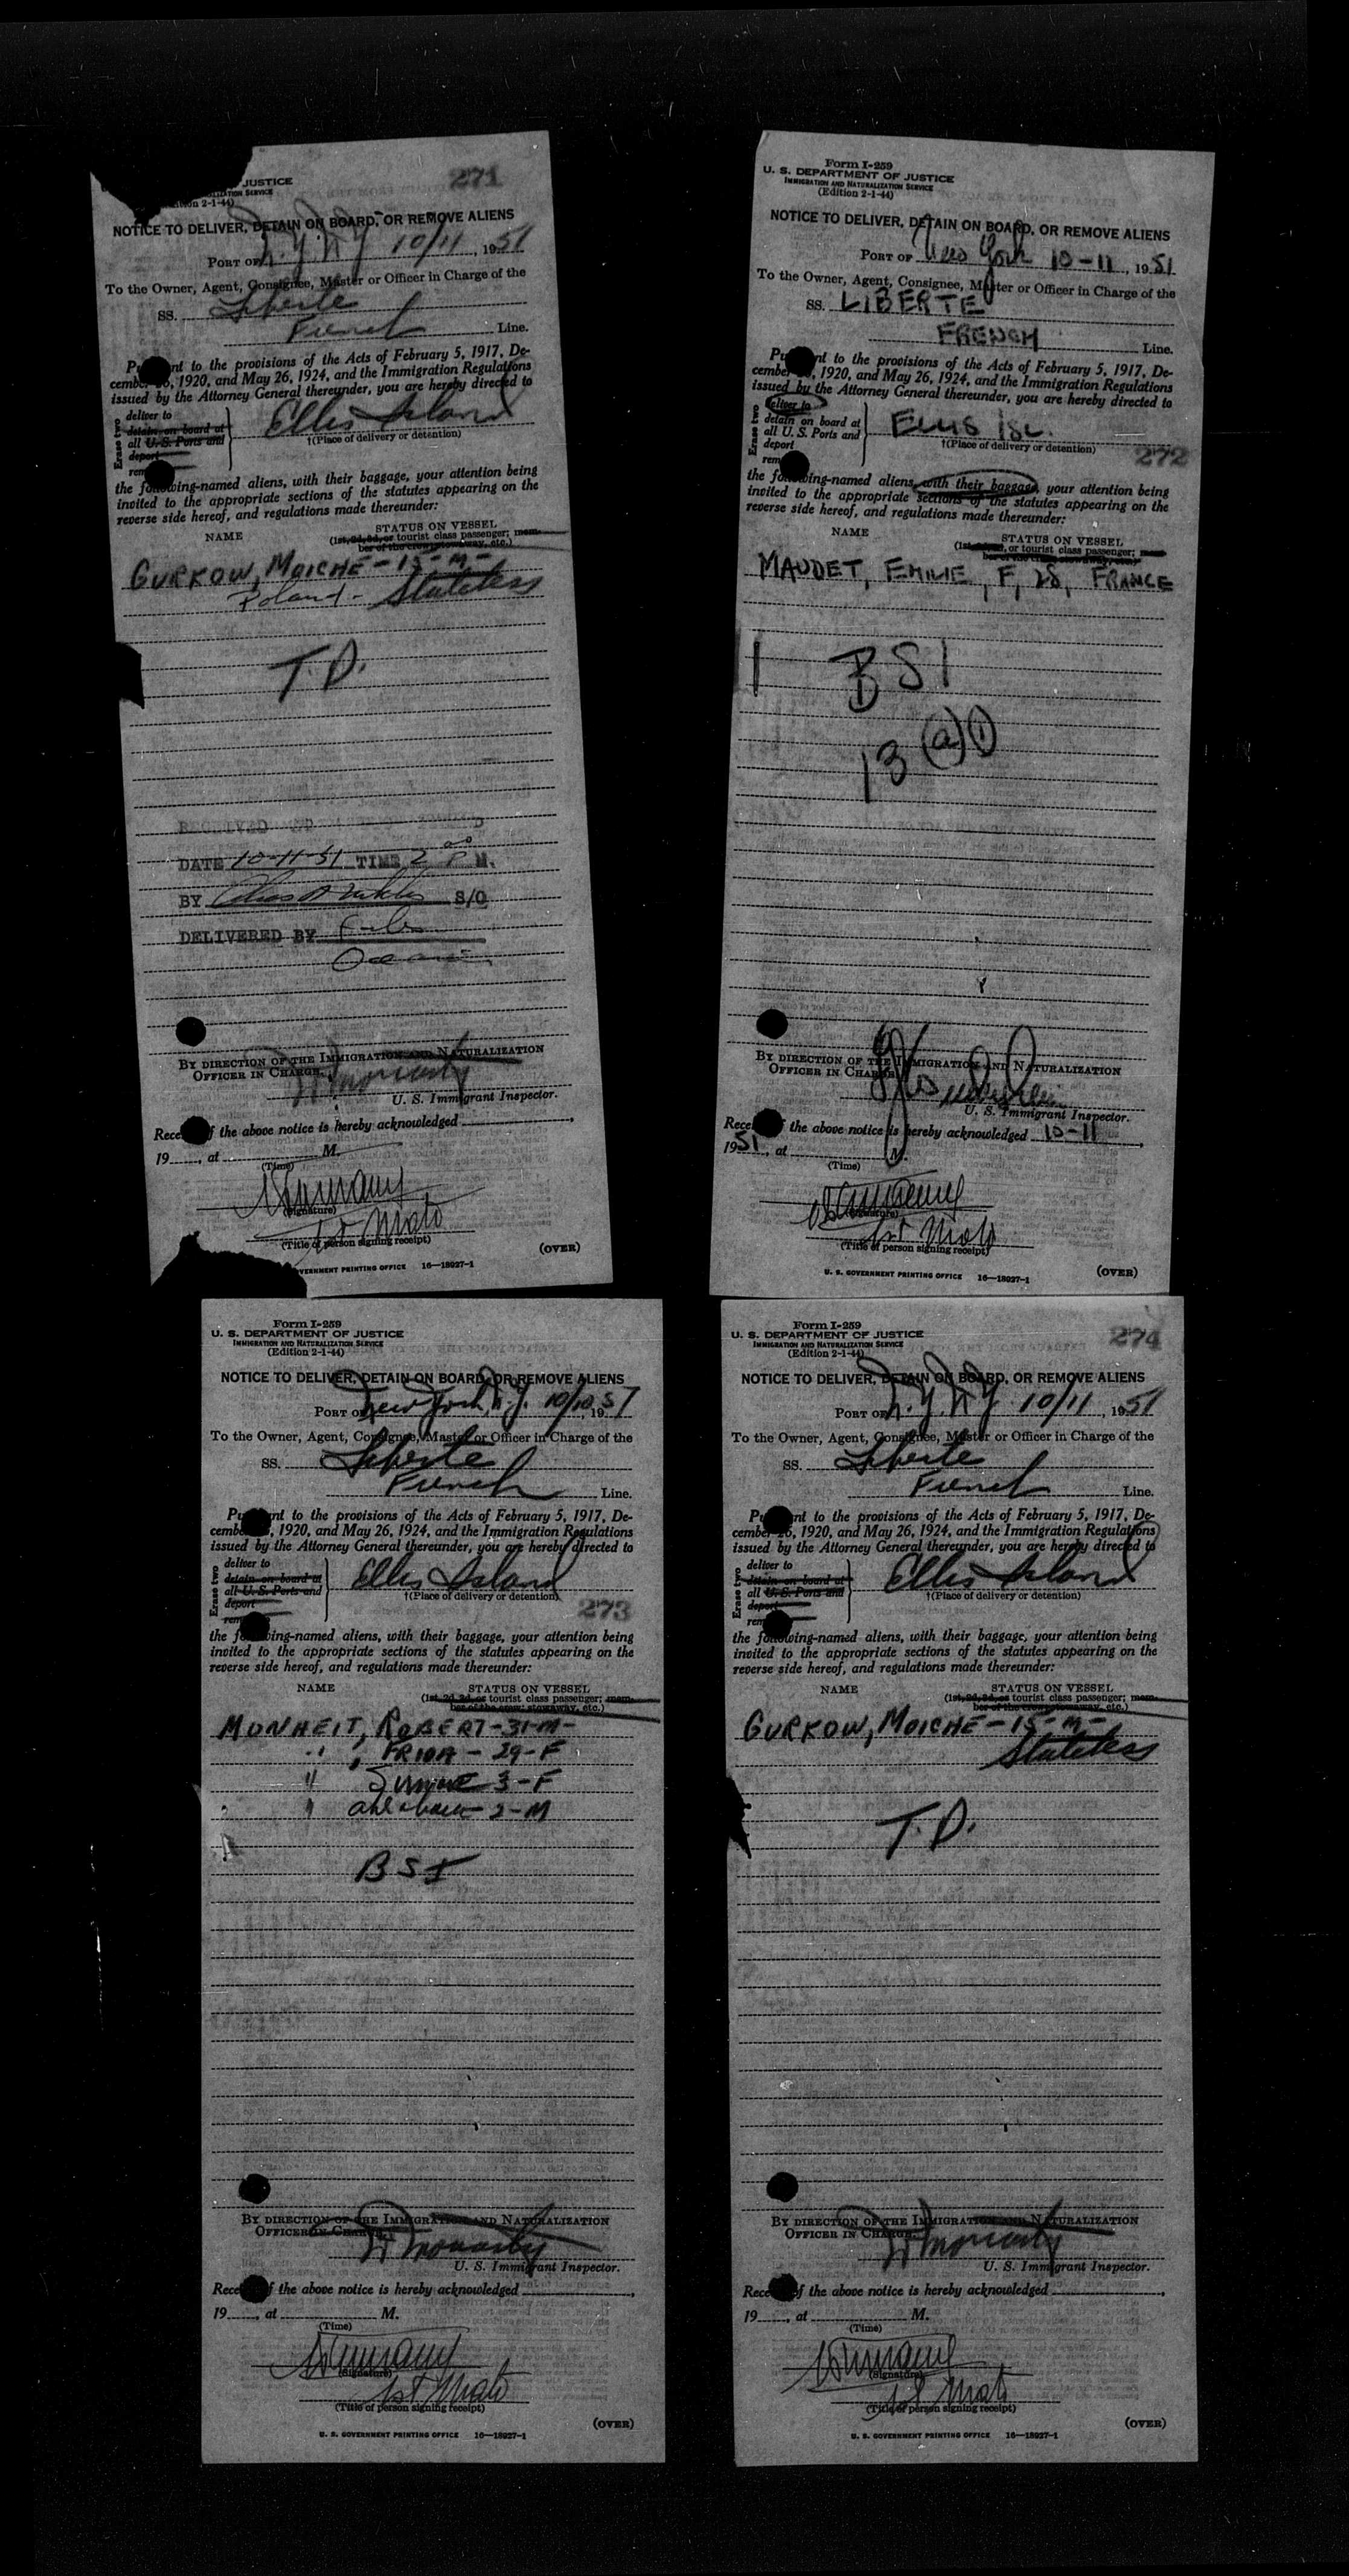 JUSTICE
271
NOTICE TO DELIVER, DETAIN ON BOARD, OR REMOVE ALIENS
PORT OF N.Y. N.Y 10/11, 1951
To the Owner, Agent, Consignee, Master or Officer in Charge of the
SS. Liberte
French Line.
to the provisions of the Acts of February 5, 1917, De-
1920, and May 26, 1924, and the Immigration Regulations
issued by the Attorney General thereunder, you are hereby directed to
Erase two
deliver to
detain on board at
all U. S. Ports and
deport
Ellis Island
†(Place of delivery or detention)
the following-named aliens, with their baggage, your attention being
invited to the appropriate sections of the statutes appearing on the
reverse side hereof, and regulations made thereunder:
NAME STATUS ON VESSEL
(1st, 2d, 3d, or tourist class passenger; mem-
ber of the crew, stowaway, etc.)
GURKOW, MOICHE - 15 - M -
Poland - Stateless
T.D.
RECEIVED
DATE 10-11-51 TIME 2 00 P M.
BY S/O
DELIVERED BY
BY DIRECTION OF THE IMMIGRATION AND NATURALIZATION
OFFICER IN CHARGE.
U. S. Immigrant Inspector.
the above notice is hereby acknowledged
19 , at M.
(Time)
(Signature)
1st Mate
(Title of person signing receipt)
(OVER)
GOVERNMENT PRINTING OFFICE 16—18027-1
Form I-259
U. S. DEPARTMENT OF JUSTICE
IMMIGRATION AND NATURALIZATION SERVICE
(Edition 2-1-44)
NOTICE TO DELIVER, DETAIN ON BOARD, OR REMOVE ALIENS
PORT OF New York 10-11, 1951
To the Owner, Agent, Consignee, Master or Officer in Charge of the
SS. LIBERTE
FRENCH Line.
to the provisions of the Acts of February 5, 1917, De-
1920, and May 26, 1924, and the Immigration Regulations
issued by the Attorney General thereunder, you are hereby directed to
Erase two
deliver to
detain on board at
all U. S. Ports and
deport
ELLIS ISL.
†(Place of delivery or detention)
272
the following-named aliens, with their baggage, your attention being
invited to the appropriate sections of the statutes appearing on the
reverse side hereof, and regulations made thereunder:
NAME STATUS ON VESSEL
(1st, 2d, 3d, or tourist class passenger; mem-
ber of the crew, stowaway, etc.)
MAUDET, EMILIE, F, 28, FRANCE
BSI
13 (a)(1)
BY DIRECTION OF THE IMMIGRATION AND NATURALIZATION
OFFICER IN CHARGE
U. S. Immigrant Inspector.
the above notice is hereby acknowledged 10-11,
1951, at M.
(Time)
(Signature)
1st Mate
(Title of person signing receipt)
(OVER)
U. S. GOVERNMENT PRINTING OFFICE 16—18027-1
Form I-259
U. S. DEPARTMENT OF JUSTICE
IMMIGRATION AND NATURALIZATION SERVICE
(Edition 2-1-44)
NOTICE TO DELIVER, DETAIN ON BOARD, OR REMOVE ALIENS
PORT OF New York, N.Y. 10/10, 1951
To the Owner, Agent, Consignee, Master or Officer in Charge of the
SS. Liberte
French Line.
to the provisions of the Acts of February 5, 1917, De-
1920, and May 26, 1924, and the Immigration Regulations
issued by the Attorney General thereunder, you are hereby directed to
Erase two
deliver to
detain on board at
all U. S. Ports and
deport
Ellis Island
†(Place of delivery or detention)
273
the following-named aliens, with their baggage, your attention being
invited to the appropriate sections of the statutes appearing on the
reverse side hereof, and regulations made thereunder:
NAME STATUS ON VESSEL
(1st, 2d, 3d, or tourist class passenger; mem-
ber of the crew, stowaway, etc.)
MUNHEIT, ROBERT - 31-M-
" , FRIDA - 29 - F
" 3 - F
" 2 - M
BSI
BY DIRECTION OF THE IMMIGRATION AND NATURALIZATION
OFFICER IN CHARGE.
U. S. Immigrant Inspector.
the above notice is hereby acknowledged
19 , at M.
(Time)
(Signature)
1st Mate
(Title of person signing receipt)
(OVER)
U. S. GOVERNMENT PRINTING OFFICE 16—18027-1
Form I-259
U. S. DEPARTMENT OF JUSTICE
IMMIGRATION AND NATURALIZATION SERVICE
(Edition 2-1-44)
274
NOTICE TO DELIVER, DETAIN ON BOARD, OR REMOVE ALIENS
PORT OF N.Y. N.Y 10/11, 1951
To the Owner, Agent, Consignee, Master or Officer in Charge of the
SS. Liberte
French Line.
to the provisions of the Acts of February 5, 1917, De-
1920, and May 26, 1924, and the Immigration Regulations
issued by the Attorney General thereunder, you are hereby directed to
Erase two
deliver to
detain on board at
all U. S. Ports and
deport
Ellis Island
†(Place of delivery or detention)
the following-named aliens, with their baggage, your attention being
invited to the appropriate sections of the statutes appearing on the
reverse side hereof, and regulations made thereunder:
NAME STATUS ON VESSEL
(1st, 2d, 3d, or tourist class passenger; mem-
ber of the crew, stowaway, etc.)
GURKOW, MOICHE - 15 - M -
Stateless
T.D.
BY DIRECTION OF THE IMMIGRATION AND NATURALIZATION
OFFICER IN CHARGE.
U. S. Immigrant Inspector.
the above notice is hereby acknowledged
19 , at M.
(Time)
(Signature)
1st Mate
(Title of person signing receipt)
(OVER)
U. S. GOVERNMENT PRINTING OFFICE 16—18027-1